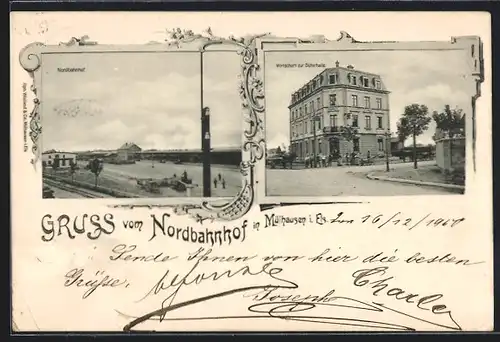 Nordbahnhof
Wirtschaft zur Güterhalle
GRUSS vom Nordbahnhof in Mülhausen i. Els.
16/12/1900
Sende Ihnen von hier die besten
Grüsse,
Charles
Joseph